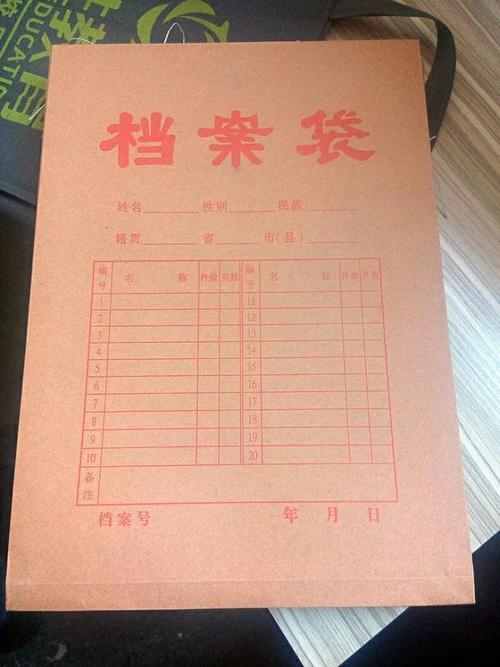 教育
EDUCATION
档案袋
姓名________ 性别________ 民族________
籍贯________ 省________ 市(县)________
编号 名 称 件数 页数 编号 名 称 件数 页数
1 11
2 12
3 13
4 14
5 15
6 16
7 17
8 18
9 19
10 20
备注
档案号 年 月 日